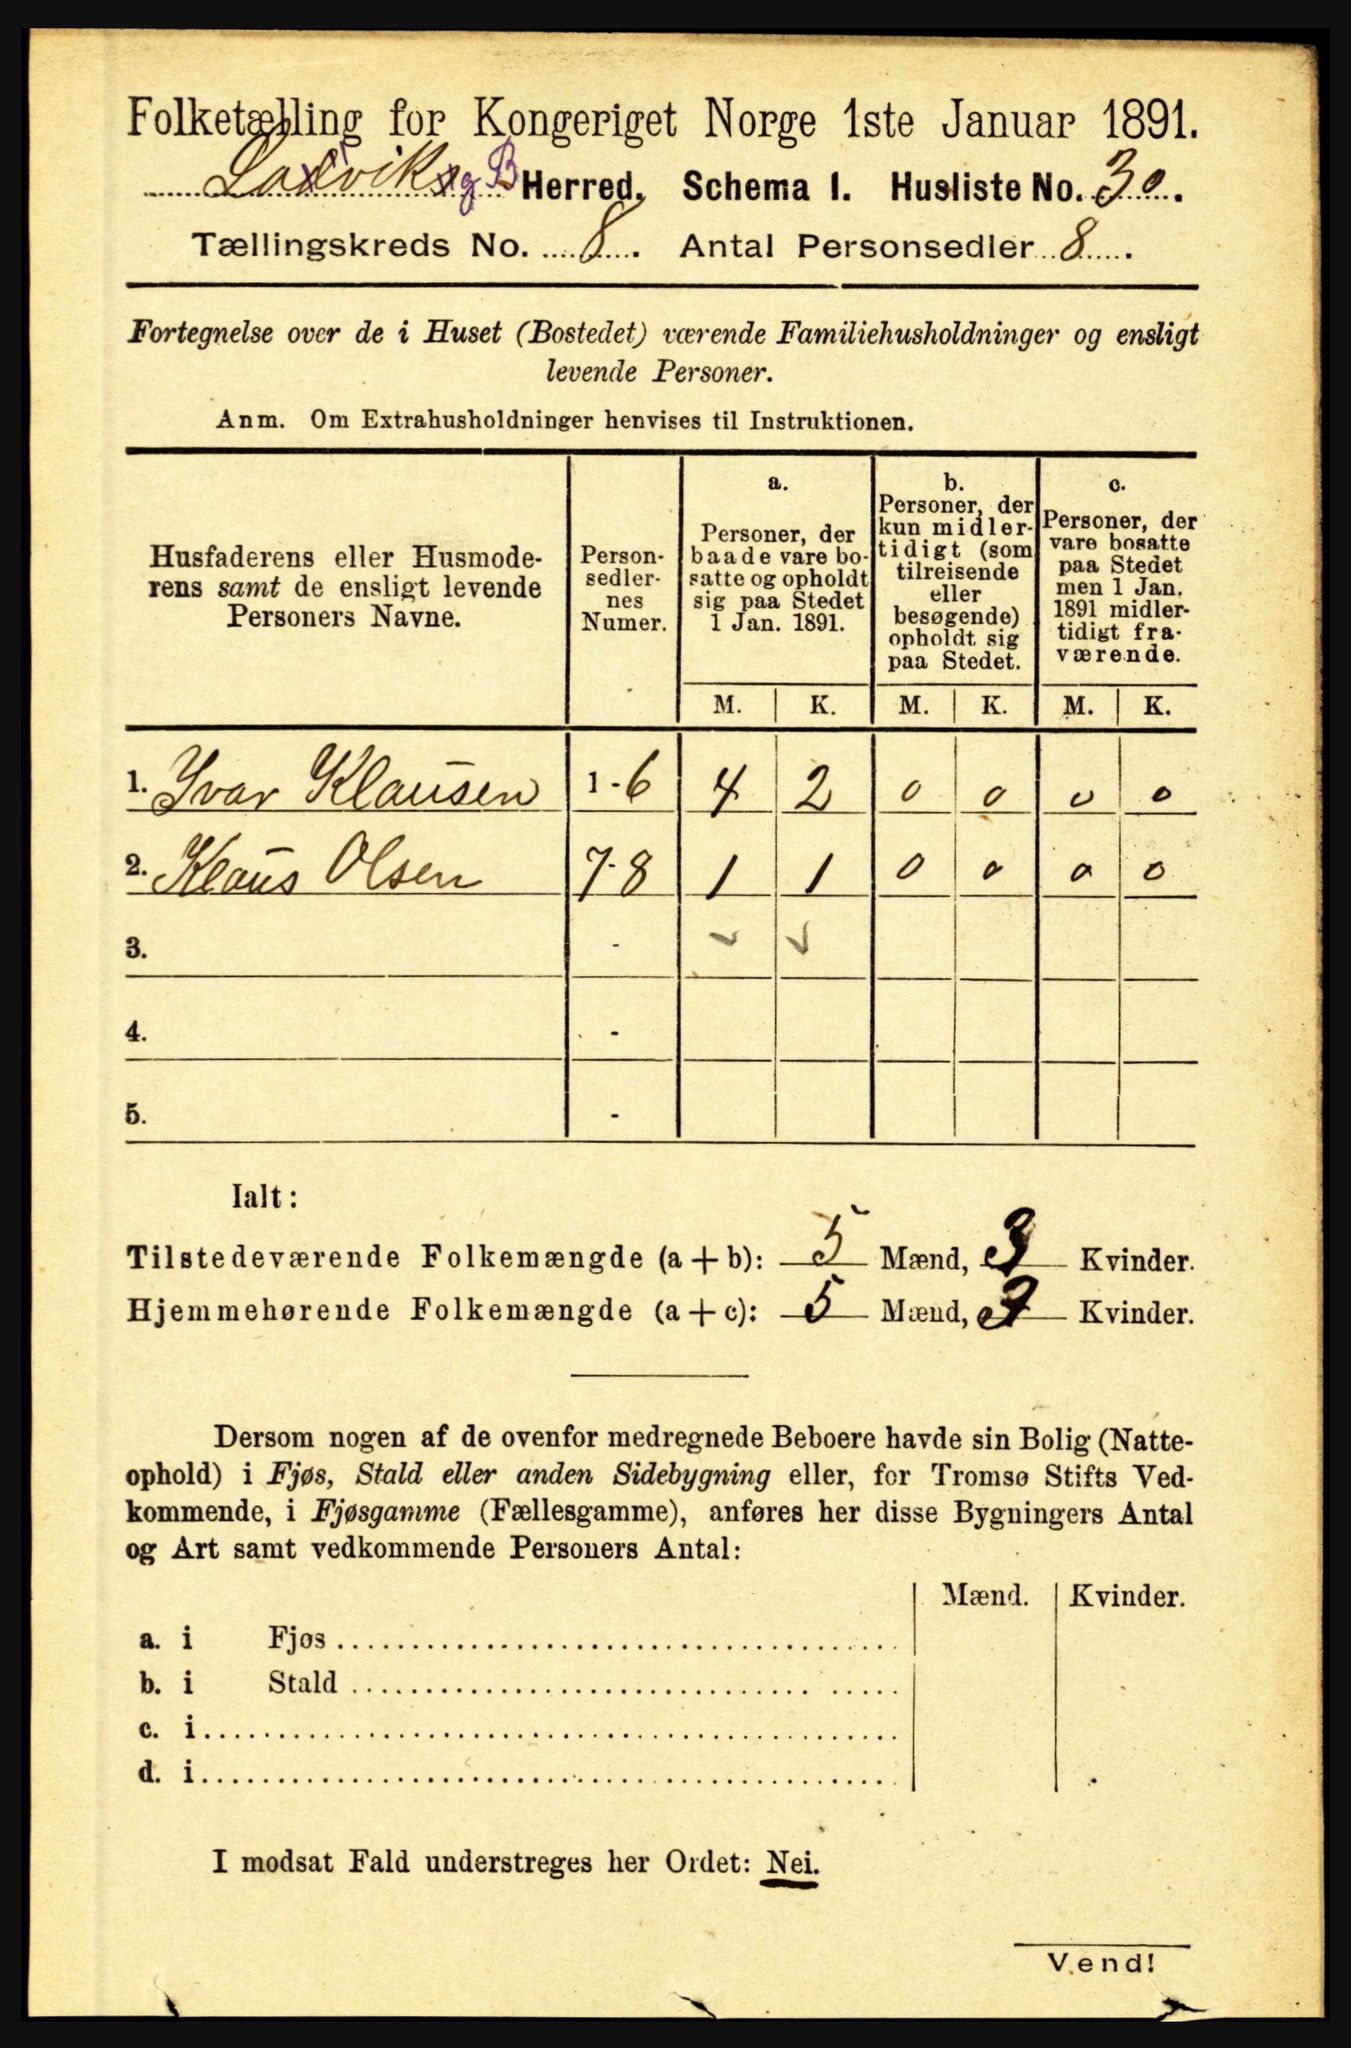 Folketælling for Kongeriget Norge 1ste Januar 1891.
Ladvik og B Herred. Schema I. Husliste No. 30.
Tællingskreds No. 8. Antal Personsedler 8.
Fortegnelse over de i Huset (Bostedet) værende Familiehusholdninger og ensligt
levende Personer.
Anm. Om Extrahusholdninger henvises til Instruktionen.
Husfaderens eller Husmode-
rens samt de ensligt levende
Personers Navne.
Person-
sedler-
nes
Numer.
a.
Personer, der
baade vare bo-
satte og opholdt
sig paa Stedet
1 Jan. 1891.
b.
Personer, der
kun midler-
tidigt (som
tilreisende
eller
besøgende)
opholdt sig
paa Stedet.
c.
Personer, der
vare bosatte
paa Stedet
men 1 Jan.
1891 midler-
tidigt fra-
værende.
M. K. M. K. M. K.
1. Ivar Klausen 1-6 4 2 0 0 0 0
2. Klaus Olsen 7-8 1 1 0 0 0 0
3. -
4. -
5. -
Ialt:
Tilstedeværende Folkemængde (a + b): 5 Mænd, 3 Kvinder.
Hjemmehørende Folkemængde (a + c): 5 Mænd, 3 Kvinder.
Dersom nogen af de ovenfor medregnede Beboere havde sin Bolig (Natte-
ophold) i Fjøs, Stald eller anden Sidebygning eller, for Tromsø Stifts Ved-
kommende, i Fjøsgamme (Fællesgamme), anføres her disse Bygningers Antal
og Art samt vedkommende Personers Antal:
Mænd. Kvinder.
a. i Fjøs
b. i Stald
c. i
d. i
I modsat Fald understreges her Ordet: Nei.
Vend!